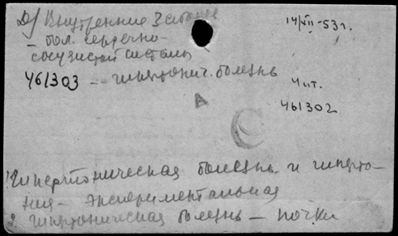 Д/ Внутренние Заболев
14/VII-53г.
– бол. сердечно-
сосудистой системы
461303 – гипертонич. болезнь
4 шт.
461302
А
С
1. Гипертоническая болезнь и гиперто-
ния – экспериментальная
2. Гипертоническая болезнь – почки